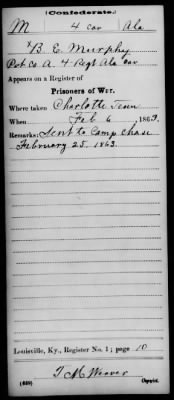 (Confederate.)
M 4 Cav Ala
B. E. Murphy
Pvt Co. A. 4 Regt Ala Cav
Appears on a Register of
Prisoners of War.
Where taken Charlotte Tenn
When Feb 6, 1863.
Remarks: Sent to Camp Chase
February 25. 1863.
Louisville, Ky., Register No. 1; page 10
T. M. Weaver
(639) Copyist.